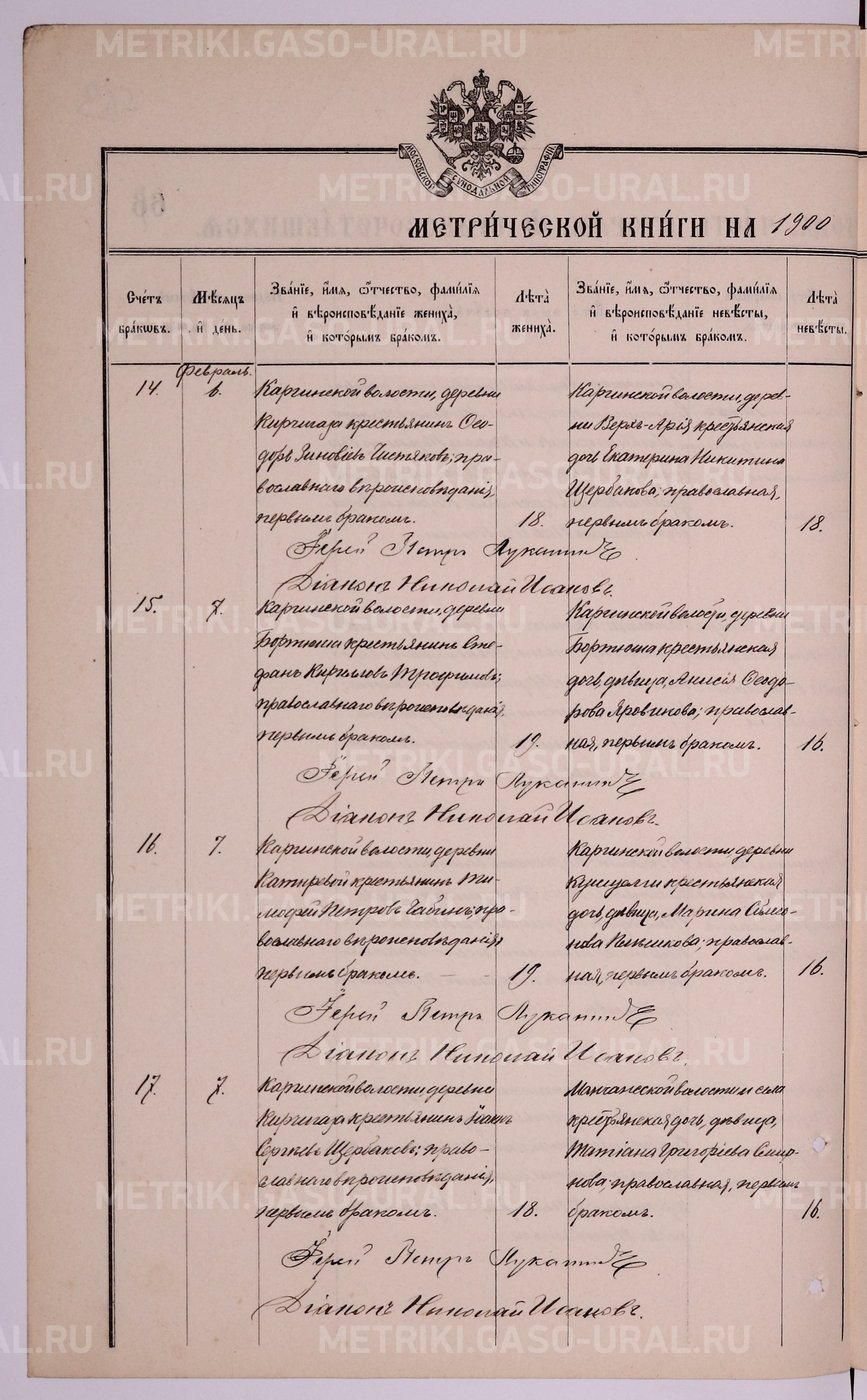 METRIKI.GASO-URAL.RU
МОСКОВСКОЙ СѴНОДАЛЬНОЙ ТИПОГРАФІИ
МЕТРИ́ЧЕСКОЙ КНИ́ГИ НА 1900
Сче́тъ бра́кѡвъ.
Мѣ́сяцъ и҆ де́нь.
Зва́нїе, и҆́мѧ, ѻ҆́тчество, фами́лїѧ
и҆ вѣроисповѣ́данїе жениха̀,
и҆ кото́рымъ бра́комъ.
Лѣ́та жениха̀.
Зва́нїе, и҆́мѧ, ѻ҆́тчество, фами́лїѧ
и҆ вѣроисповѣ́данїе невѣ́сты,
и҆ кото́рымъ бра́комъ.
Лѣ́та невѣ́сты.
Февраль.
14. 6.
Каргинской волости, деревни
Киргишаза крестьянинъ Ѳео-
доръ Зиновіевъ Чистяковъ; пра-
вославнаго вѣроисповѣданія,
первымъ бракомъ. 18.
Каргинской волости, дерев-
ни Верхъ-Арія крестьянская
дочь Екатерина Никитина
Щербакова; православная,
первымъ бракомъ. 18.
Іерей Петръ Лукании
Діаконъ Николай Исаковъ.
15. 7.
Каргинской волости, деревни
Бортюша крестьянинъ Сте-
фанъ Кирилловъ Трофимовъ;
православнаго вѣроисповѣданія,
первымъ бракомъ. 19.
Каргинской волости, деревни
Бортюша крестьянская
дочь, дѣвица, Анисія Ѳеодо-
рова Яровикова; православ-
ная, первымъ бракомъ. 16.
Іерей Петръ
Діаконъ Николай Исаковъ.
16. 7.
Каргинской волости, деревни
крестьянинъ Ти-
моѳей Петровъ Бабинъ; пра-
вославнаго вѣроисповѣданія,
первымъ бракомъ. 19.
Каргинской волости деревни
крестьянская
дочь, дѣвица, Марина Симео-
нова православ-
ная, первымъ бракомъ. 16.
Іерей Петръ
Діаконъ Николай Исаковъ.
17. 7.
Каргинской волости, деревни
крестьянинъ Іоаннъ
Сергѣевъ Щербаковъ; право-
славнаго вѣроисповѣданія,
первымъ бракомъ. 18.
Манчажской волости и села
крестьянская дочь, дѣвица,
Татіана Григоріева Смир-
нова; православная, первымъ
бракомъ. 16.
Іерей Петръ
Діаконъ Николай Исаковъ.